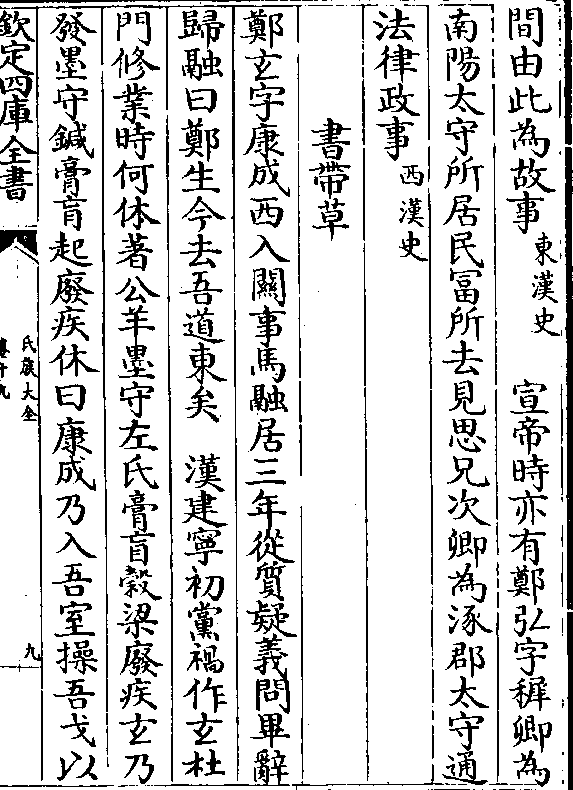 間由此為故事東漢史　宣帝時亦有鄭弘字穉卿為
南陽太守所居民冨所去見思兄次卿為涿郡太守通
法律政事西漢史
書帶草
鄭玄字康成西入關事馬融居三年從質疑義問畢辭
歸融曰鄭生今去吾道東矣　漢建寧初黨禍作玄杜
門修業時何休著公羊墨守左氏膏肓穀梁廢疾玄乃
發墨守鍼膏肓起廢疾休曰康成乃入吾室操吾戈以
欽定四庫全書
氏族大全
九